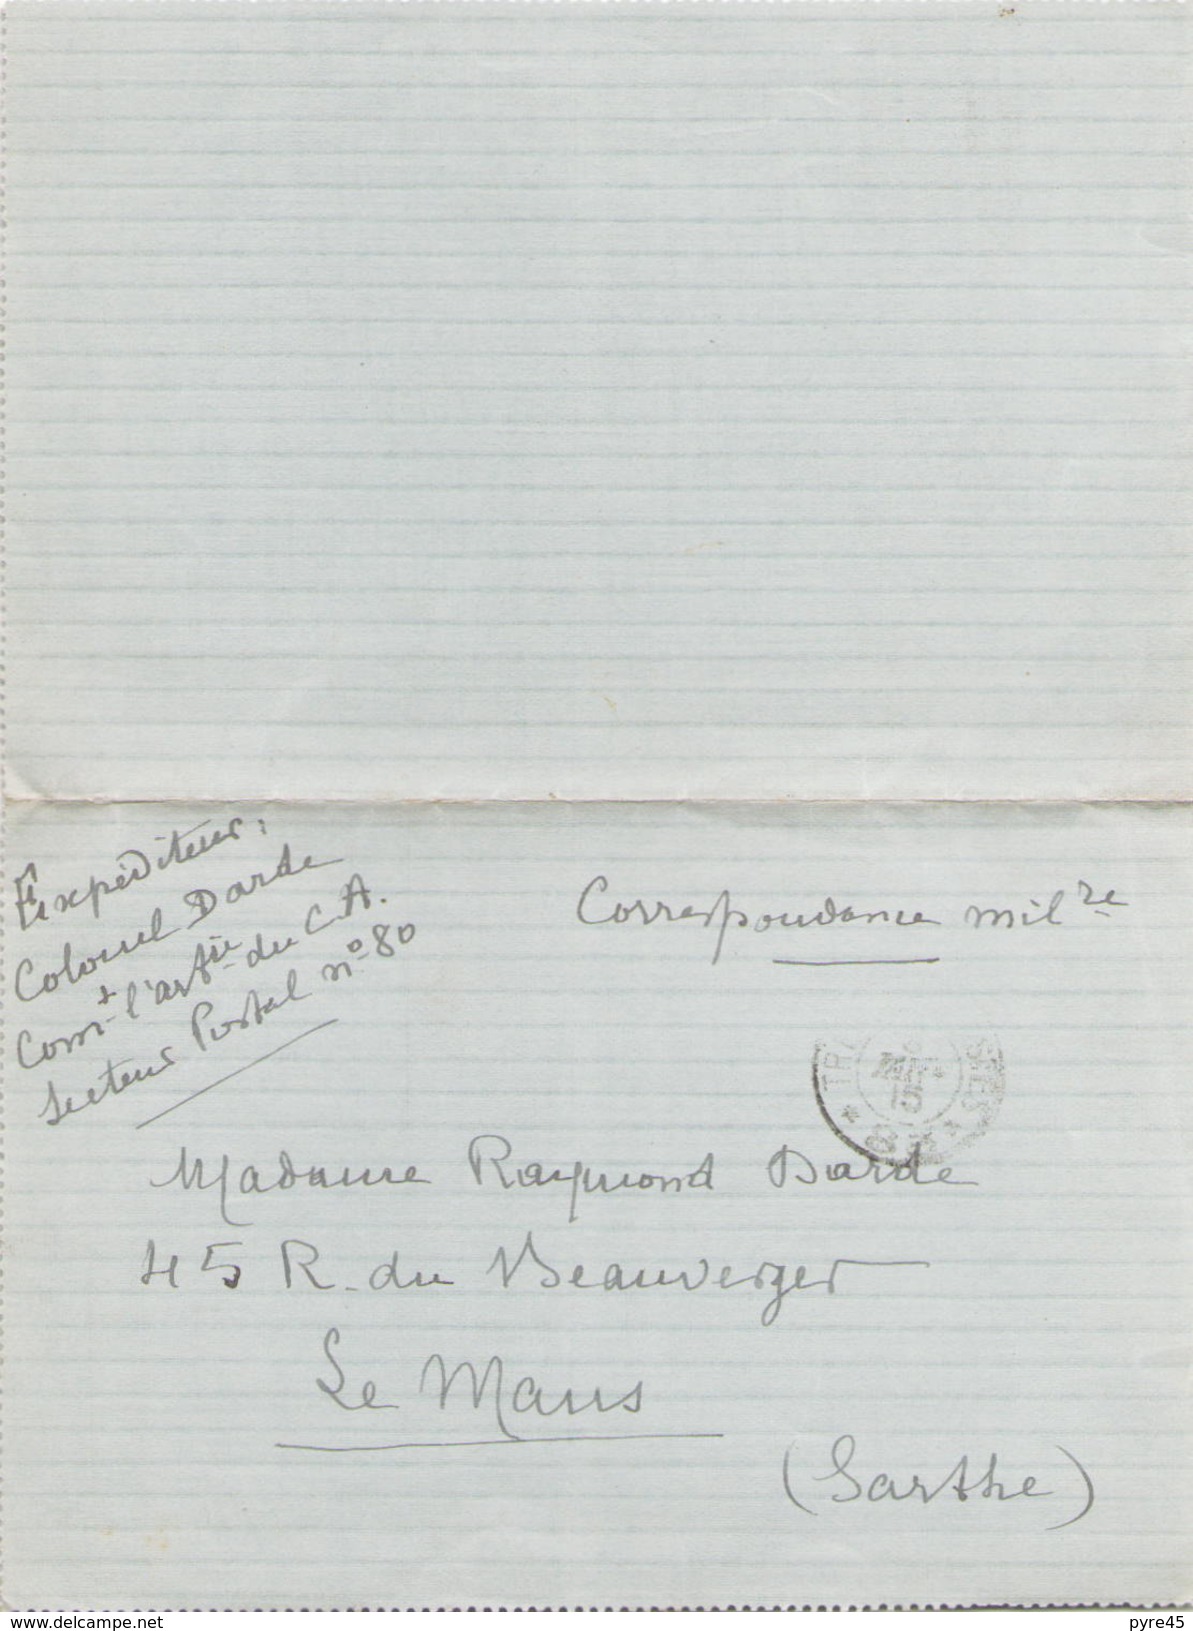 Expéditeur:
Colonel Darde
Comt l'artie du C.A.
Secteur Postal nº 80
Correspondance milre
TR
15
Madame Raymond Darde
45 R. du Beauverger
Le Mans
(Sarthe)
delcampe.net
pyre45